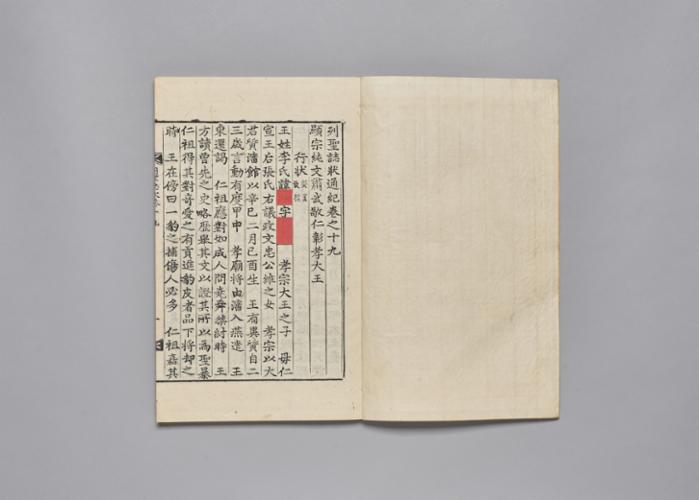 列聖誌狀通紀卷之十九
顯宗純文肅武敬仁彰孝大王
行狀
王姓李氏諱 字 孝宗大王之子 母仁
宣王后張氏右議政文忠公維之女 孝宗以大
君質瀋館以辛巳二月己酉生 王有異質自二
三歲言動有度甲申 孝廟將由瀋入燕遣 王
東還謁 仁祖應對如成人問堯舜桀紂時 王
方讀曾先之史略歷舉其文以證其所以爲聖暴
仁祖得其對奇愛之有貢進豹皮者品下將却之
時 王在傍曰一豹之捕傷人必多 仁祖嘉其